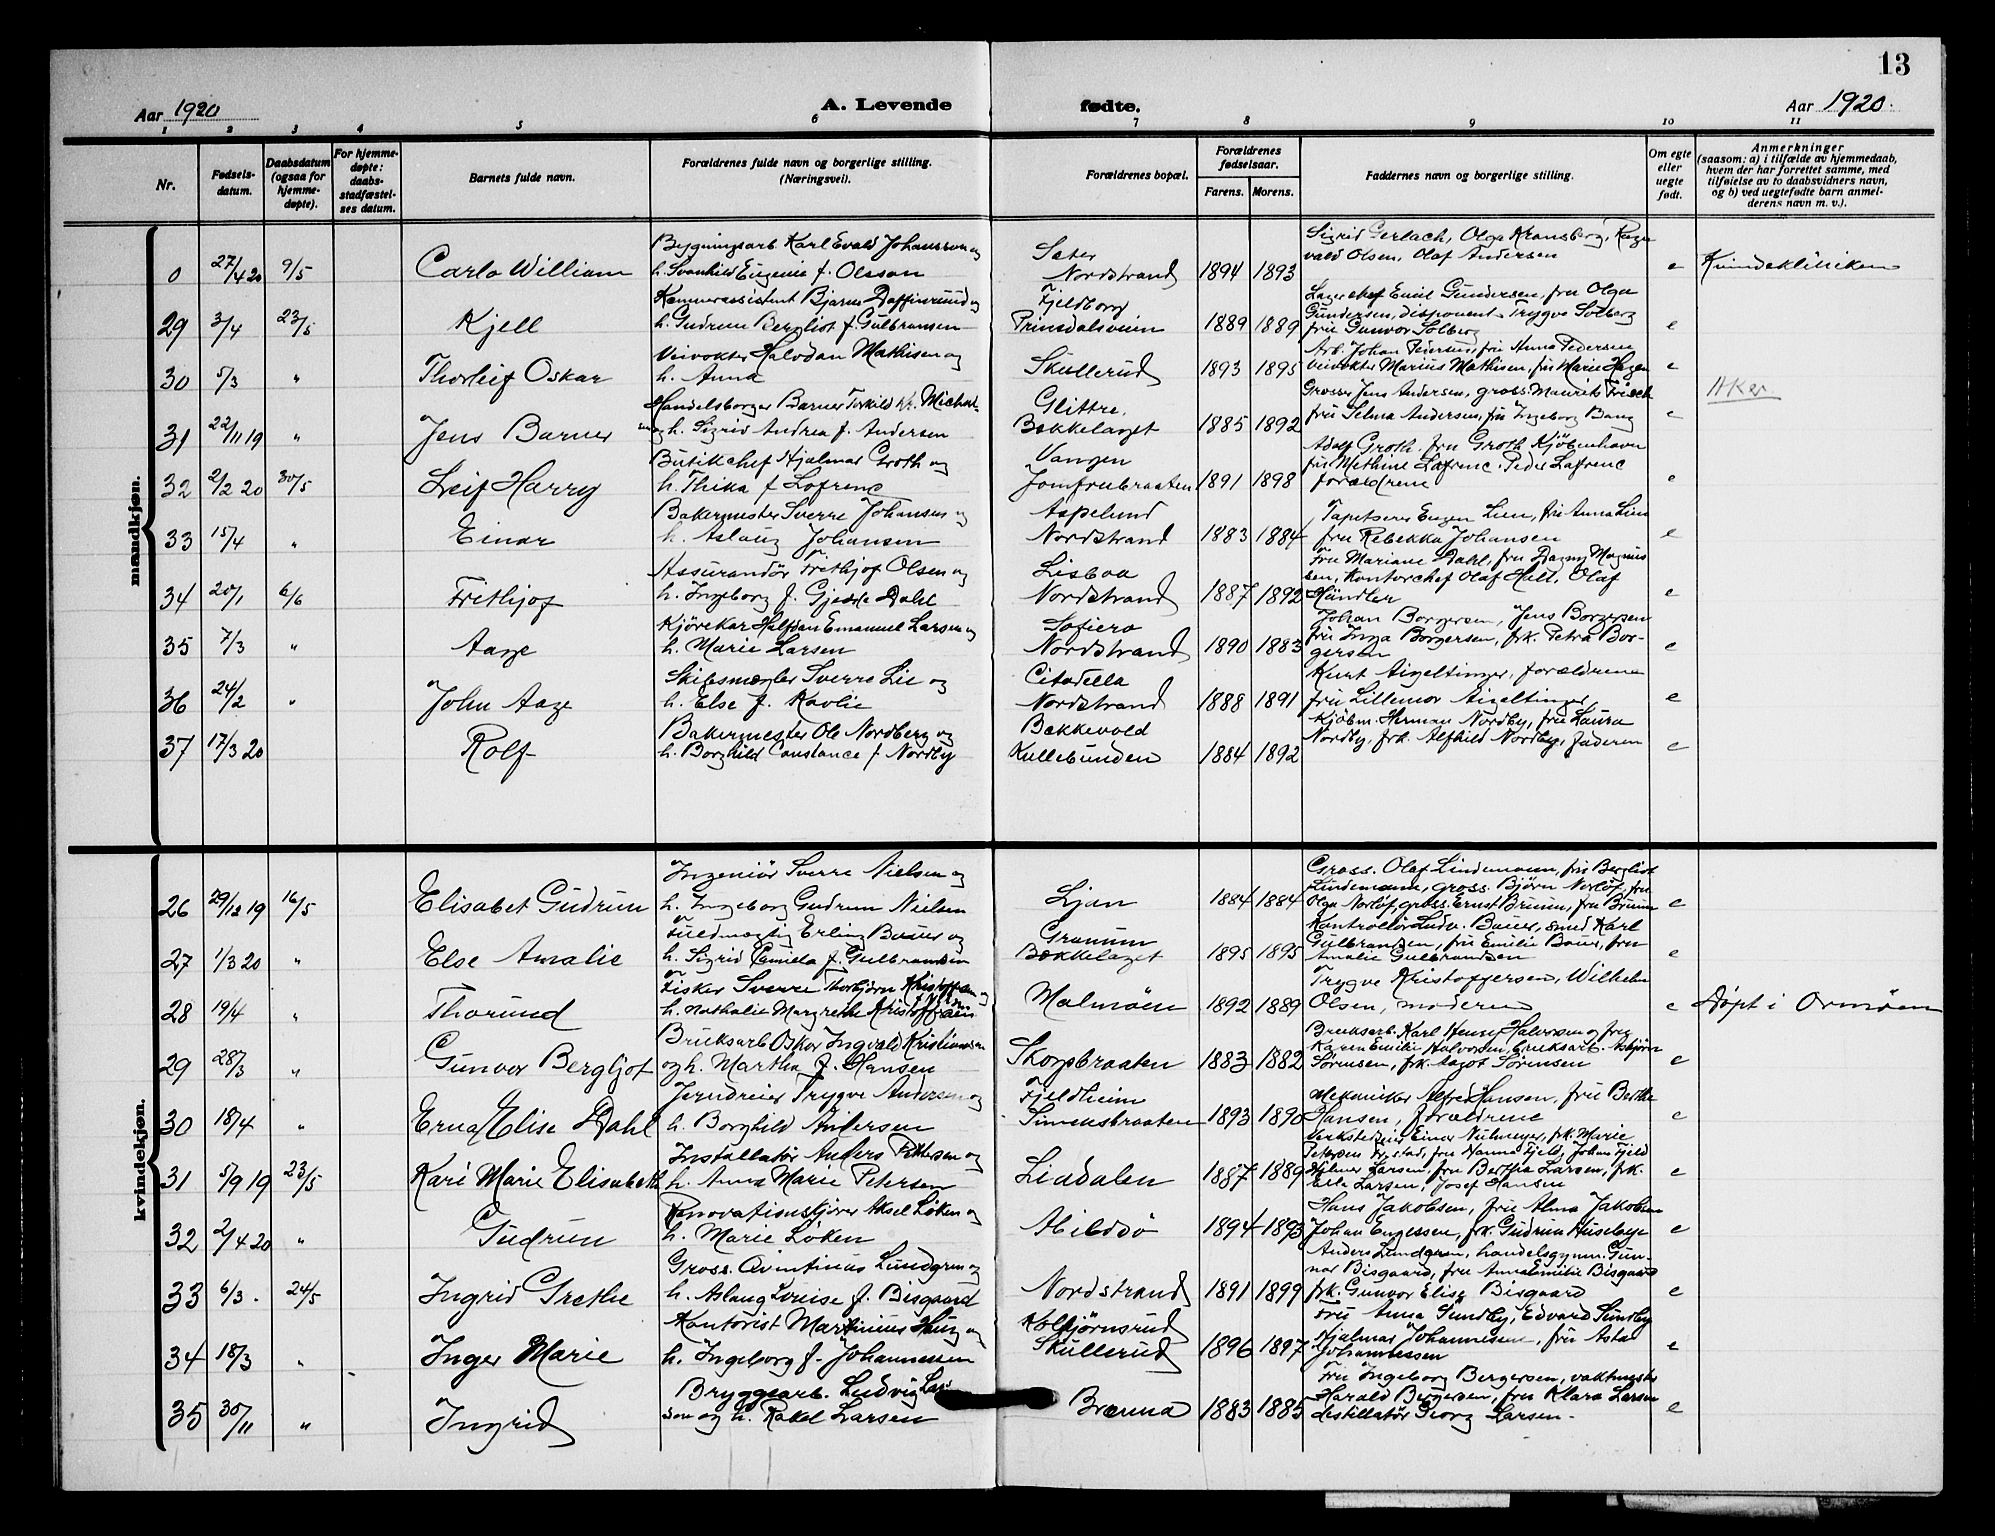 13
Aar 1920 A. Levende fødte. Aar 1920.
1 2 3 4 5 6 7 8 9 10 11
Nr.
Fødsels-
datum.
Daabsdatum
(ogsaa for
hjemme-
døpte).
For hjemme-
døpte:
daabs-
stadfæstel-
ses datum.
Barnets fulde navn.
Forældrenes fulde navn og borgerlige stilling.
(Næringsvei).
Forældrenes bopæl.
Forældrenes
fødselsaar.
Farens. Morens.
Faddernes navn og borgerlige stilling.
Om egte
eller
uegte
født.
Anmerkninger
(saasom: a) i tilfælde av hjemmedaab,
hvem der har forrettet samme, med
tilføielse av to daabsvidners navn,
og b) ved uegtefødte barn anmel-
derens navn m. v.).
mandkjøn.
0 27/4 20 9/5 Carlo William
Bygningsarb Karl Evald Johansson og
h. Svanhild Eugenie f. Olsson
Sæter
Nordstrand 1894 1893
Sigrid Gerlach, Olga Kransberg, Ragn
vald Olsen, Olaf Andersen
e Kvindeklinikken
29 3/4 23/5 Kjell
Kemnerassistent Bjarne Daffinrud og
h. Gudrun Bergliot f. Gulbransen
Fjeldborg
Prinsdalsveien 1889 1889
Lagerchef Emil Gundersen, fru Olga
Gundersen, disponent Trygve Solberg
fru Gunvor Solberg
e
30 5/3 " Thorleif Oskar
Veivokter Halvdan Mathisen og
h. Anna
Skullerud 1893 1895
Arb. Johan Pedersen, fru Anna Pedersen
veivokter Marius Mathisen, fru Marie Hagen
e
Aker
31 22/11 19 " Jens Barner
Handelsborger Barner Torkild Kr. Michael-
sen og h. Sigrid Andrea f. Andersen
Glittre,
Bækkelaget 1885 1892
Grosser Jens Andersen, gross. Maurits Frisch
fru Selma Andersen, fru Ingeborg Bang
e
32 2/2 20 30/5 Leif Harry
Butikchef Hjalmar Groth og
h. Thika f Lofrenc
Vangen
Jomfrubraaten 1891 1898
Adolf Groth, fru Groth Kjøbenhavn
fru Methine Lafrenc, Peder Lafrenc
forældrene
e
33 15/4 " Einar
Bakermester Sverre Johansen og
h. Aslaug Johansen
Aspelund
Nordstrand 1883 1884
Tapetserer Eugen Lien, fru Anna Lien
fru Rebekka Johansen
e
34 20/1 6/6 Frithjof
Assurandør Frithjof Olsen og
h. Ingeborg f. Gjedde Dahl
Lisboa
Nordstrand 1887 1892
Fru Mariane Dahl, fru Dagny Magnus
sen, Kontorchef Olaf Holt, Olaf
Händler
e
35 7/3 " Aage
Kjørekar Halfdan Emanuel Larsen og
h. Marie Larsen
Sofiero
Nordstrand 1890 1883
Johan Borgersen, Jens Borgersen
fru Inga Borgersen, frk. Petra Bor-
gersen
e
36 24/2 " John Aage
Skibsmægler Sverre Lie og
h. Else f. Ravlie
Citadella
Nordstrand 1888 1891
Kurt Aigeltinger, forældrene
fru Lillemor Aigeltinger
e
37 17/3 20 Rolf
Bakermester Ole Nordberg og
h. Borghild Constance f Nordby
Bækkevold
Kullebunden 1884 1892
Kjøbm. Herman Nordby, fru Laura
Nordby, frk. Alfhild Nordby, faderen
e
kvindekjøn.
26 29/12 19 16/5 Elisabet Gudrun
Ingeniør Sverre Nielsen og
h. Ingeborg Gudrun Nielsen
Ljan 1884 1884
Gross. Olaf Lindemann, fru Bergliot
Lindemann, gross. Bjørn Norløf, fru
Olga Norløf, gross. Ernst Bruun, fru Bruun
e
27 1/3 20 " Else Amalie
Fuldmægtig Erling Bauer og
h. Sigrid Camilla f. Gulbrandsen
Granum
Bækkelaget 1895 1895
Kontrollør Ludv. Bauer, smed Karl
Gulbrandsen, fru Emilie Bauer, fru
Amalie Gulbrandsen
e
28 19/4 " Thorund
Fisker Sverre Thorbjørn Kristoffersen og
h. Nathalie Margrethe Kristoffersen
Malmøen 1892 1889
Trygve Kristoffersen, Wilhelm
Olsen, moderen
e Døpt i Ormøen
29 28/3 " Gunvor Bergljot
Bruksarb Oskar Ingvald Kristiansen
og h. Martha f. Hansen
Skogsbraaten 1883 1882
Bruksarb. Karl Henry Halvorsen og fru
Karen Emilie Halvorsen, bruksarb. Asbjørn
Sørensen, frk. Aagot Sørensen
e
30 18/4 " Erna Elise Dahl
Jerndreier Trygve Andersen og
h. Borghild Andersen
Fjeldheim
Simensbraaten 1893 1890
Mekaniker Alfred Hansen, fru Berthe
Hansen, forældrene
e
31 5/9 19 23/5 Kari Marie Elisabeth
Installatør Anders Pettersen og
h. Anna Marie Petersen
Liadalen 1887 1889
Verkstedeier Einar Neumeyer, frk. Marie
Petersen Ørstad, fru Nanna Fjeld, Johan Fjeld
Hilmer Larsen, fru Bertha Larsen, frk.
Ella Larsen, Josef Hansen
e
32 2/4 20 " Gudrun
Renovationskjører Aksel Løken og
h. Marie Løken
Abildsø 1894 1893
Hans Jakobsen, fru Alma Jakobsen
Johan Engessen, frk. Gudrun Huseby
e
33 6/3. 24/5 Ingrid Grethe
Gross. Avintinius Lundgren og
h. Aslaug Louise f. Bisgaard
Nordstrand 1891 1899
Anders Lundgren, handelsgymn. Gun-
nar Bisgaard, fru Anna Emilie Bisgaard
frk. Gunvor Elise Bisgaard
e
34 18/3 " Inger Marie
Kontorist Martinius Haug og
h. Ingeborg f. Johannessen
Kolbjørnsrud
Skullerud 1896 1897
Fru Anna Sundby, Edvard Sundby
Hjalmar Johannessen, fru Asta
Johannessen
e
35 30/11 " Ingrid
Bryggearb. Ludvig Lar-
sen og h. Rakel Larsen
Brænna 1883 1885
Fru Ingeborg Bergersen, vaktmester
Harald Bergersen, fru Klara Larsen
destillatør Georg Larsen.
e